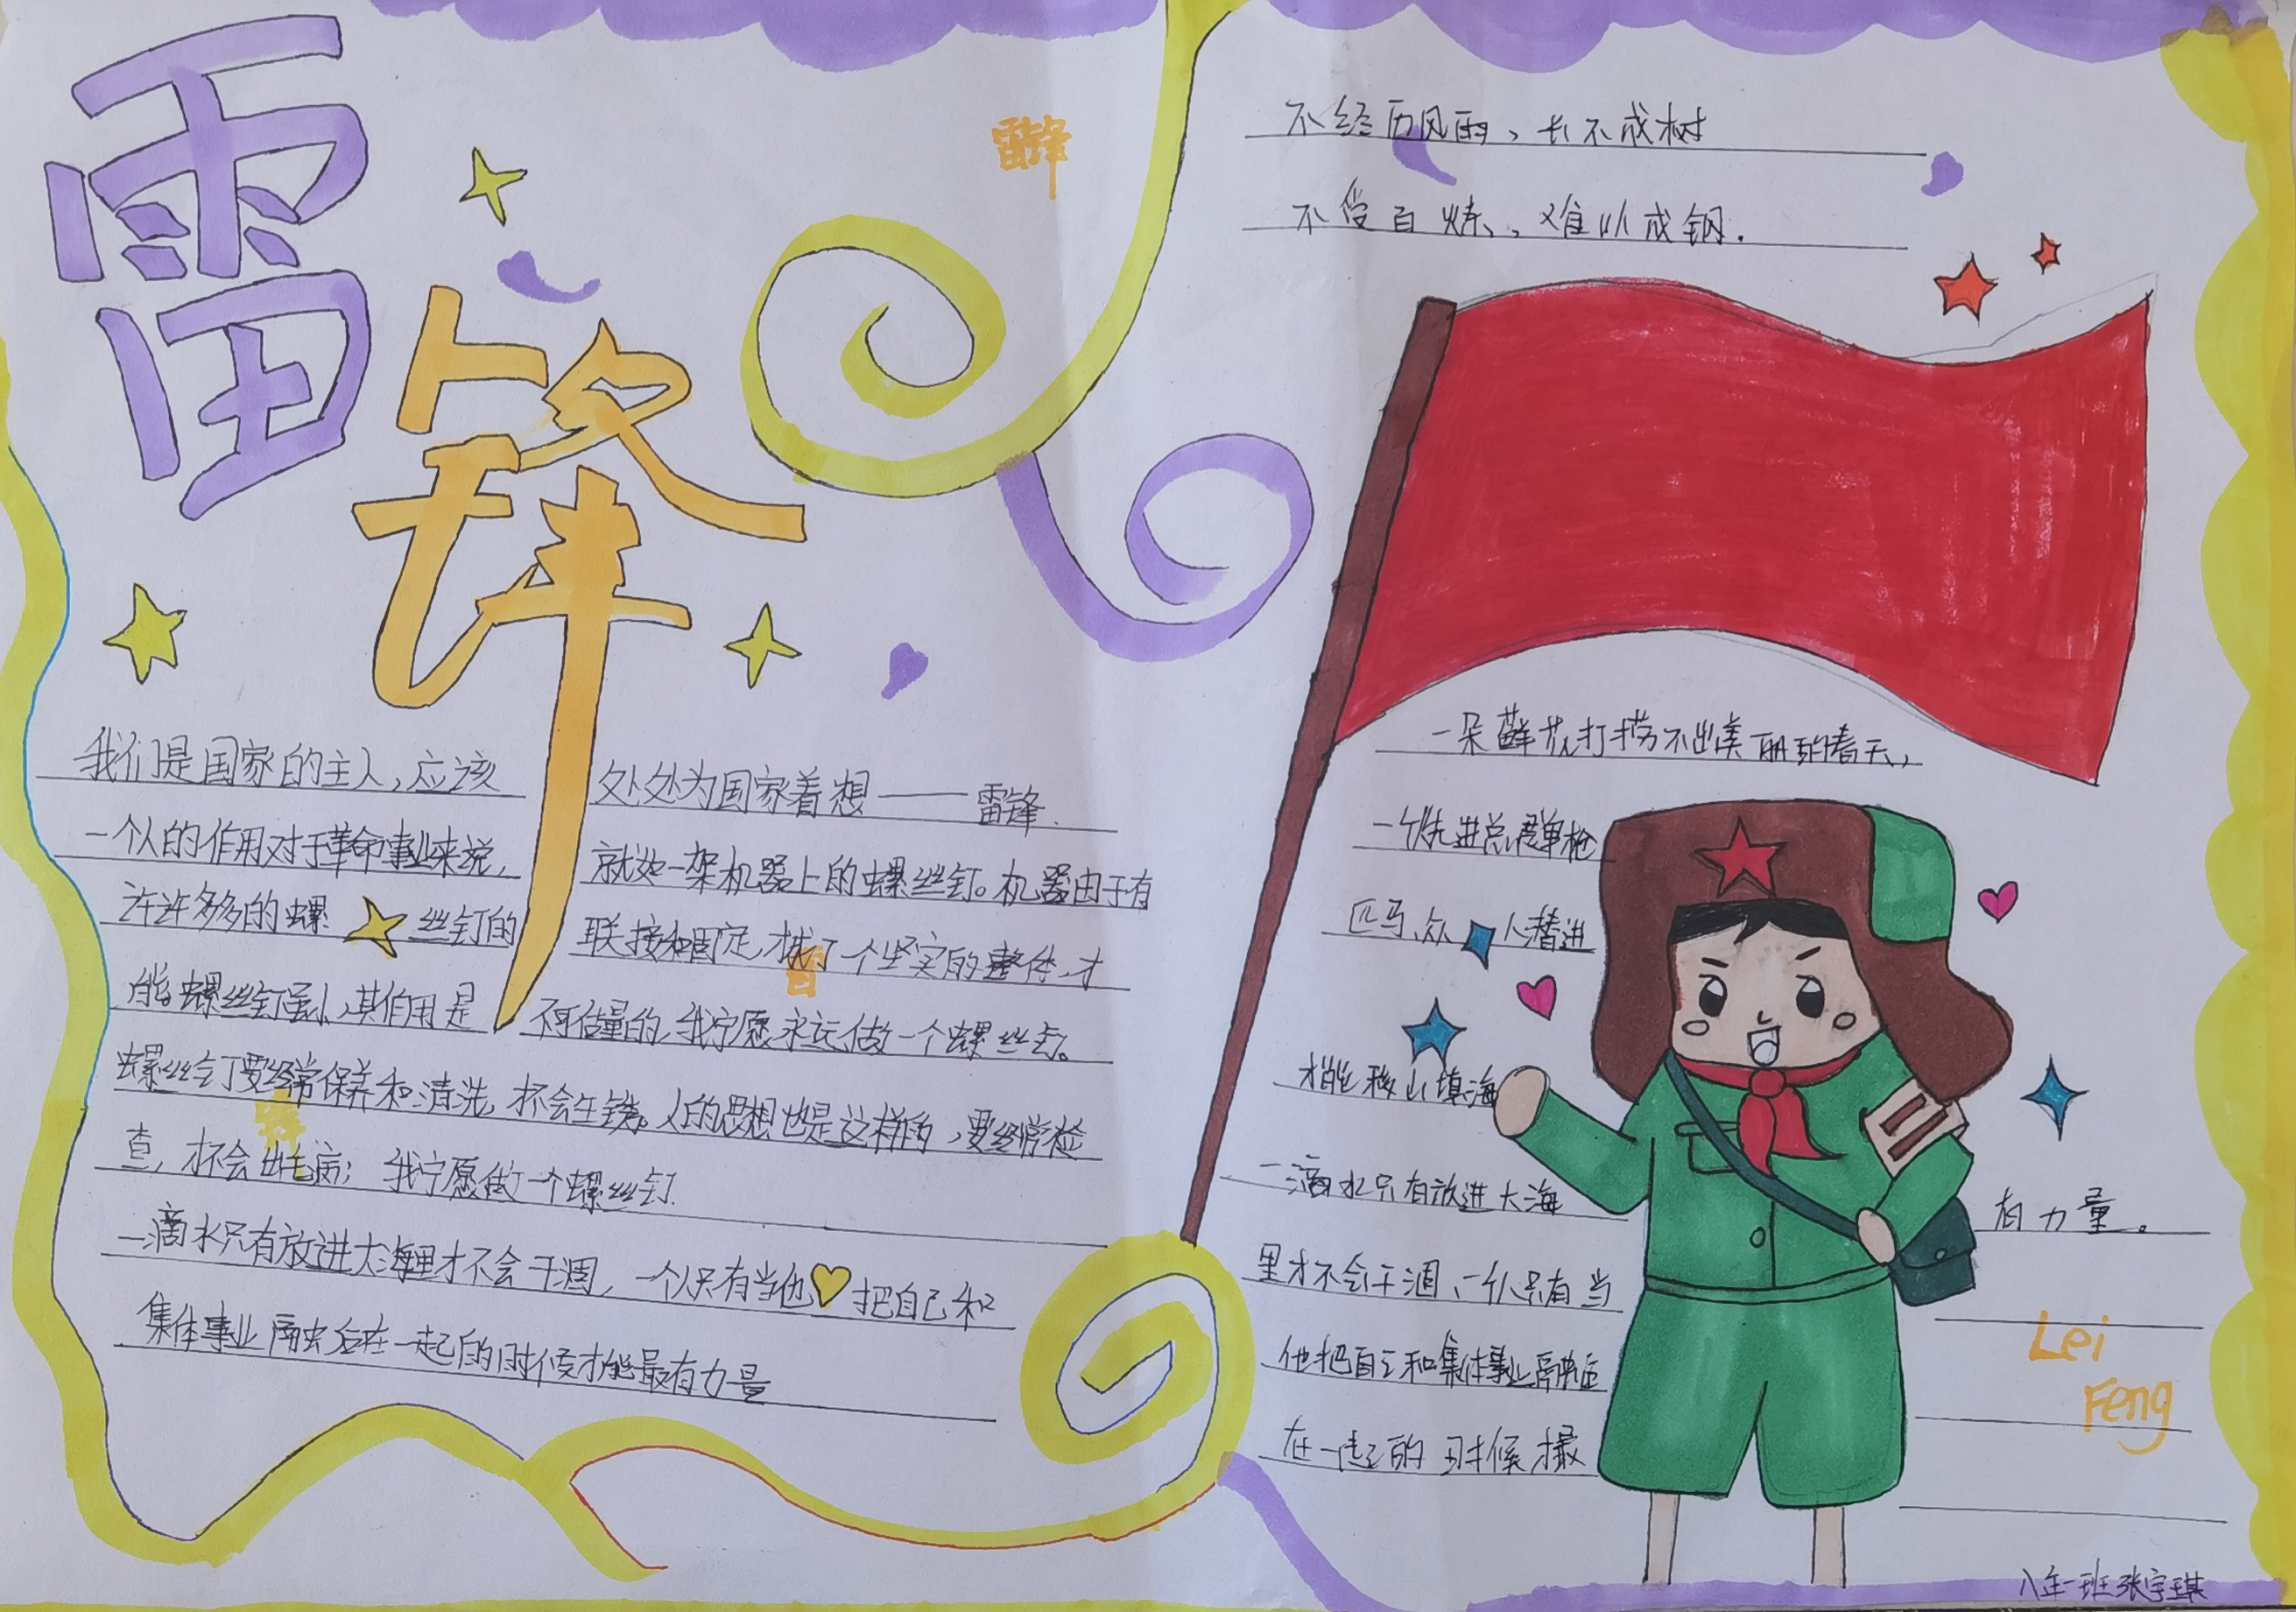 雷锋
雷锋
我们是国家的主人,应该处处为国家着想——雷锋.
一个人的作用对于革命事业来说,就如一架机器上的螺丝钉。机器由于有
许许多多的螺丝钉的联接和固定,才成了一个坚实的整体,才
能螺丝钉虽小,其作用是不可估量的,我宁愿永远做一个螺丝钉。
螺丝钉要经常保养和清洗,才不会生锈。人的思想也是这样的,要经常检
查,才不会出毛病;我宁愿做一个螺丝钉.
一滴水只有放进大海里才不会干涸,一个人只有当他把自己和
集体事业融合在一起的时候才能最有力量
不经历风雨,长不成树
不受百炼,难以成钢.
一朵鲜花打扮不出美丽的春天,
一个人先进总是单枪
匹马,众人替进
才能移山填海
一滴水只有放进大海
里才不会干涸,一个人只有当
他把自己和集体事业融合
在一起的时候才最
有力量。
Lei
Feng
八年一班张宇琪